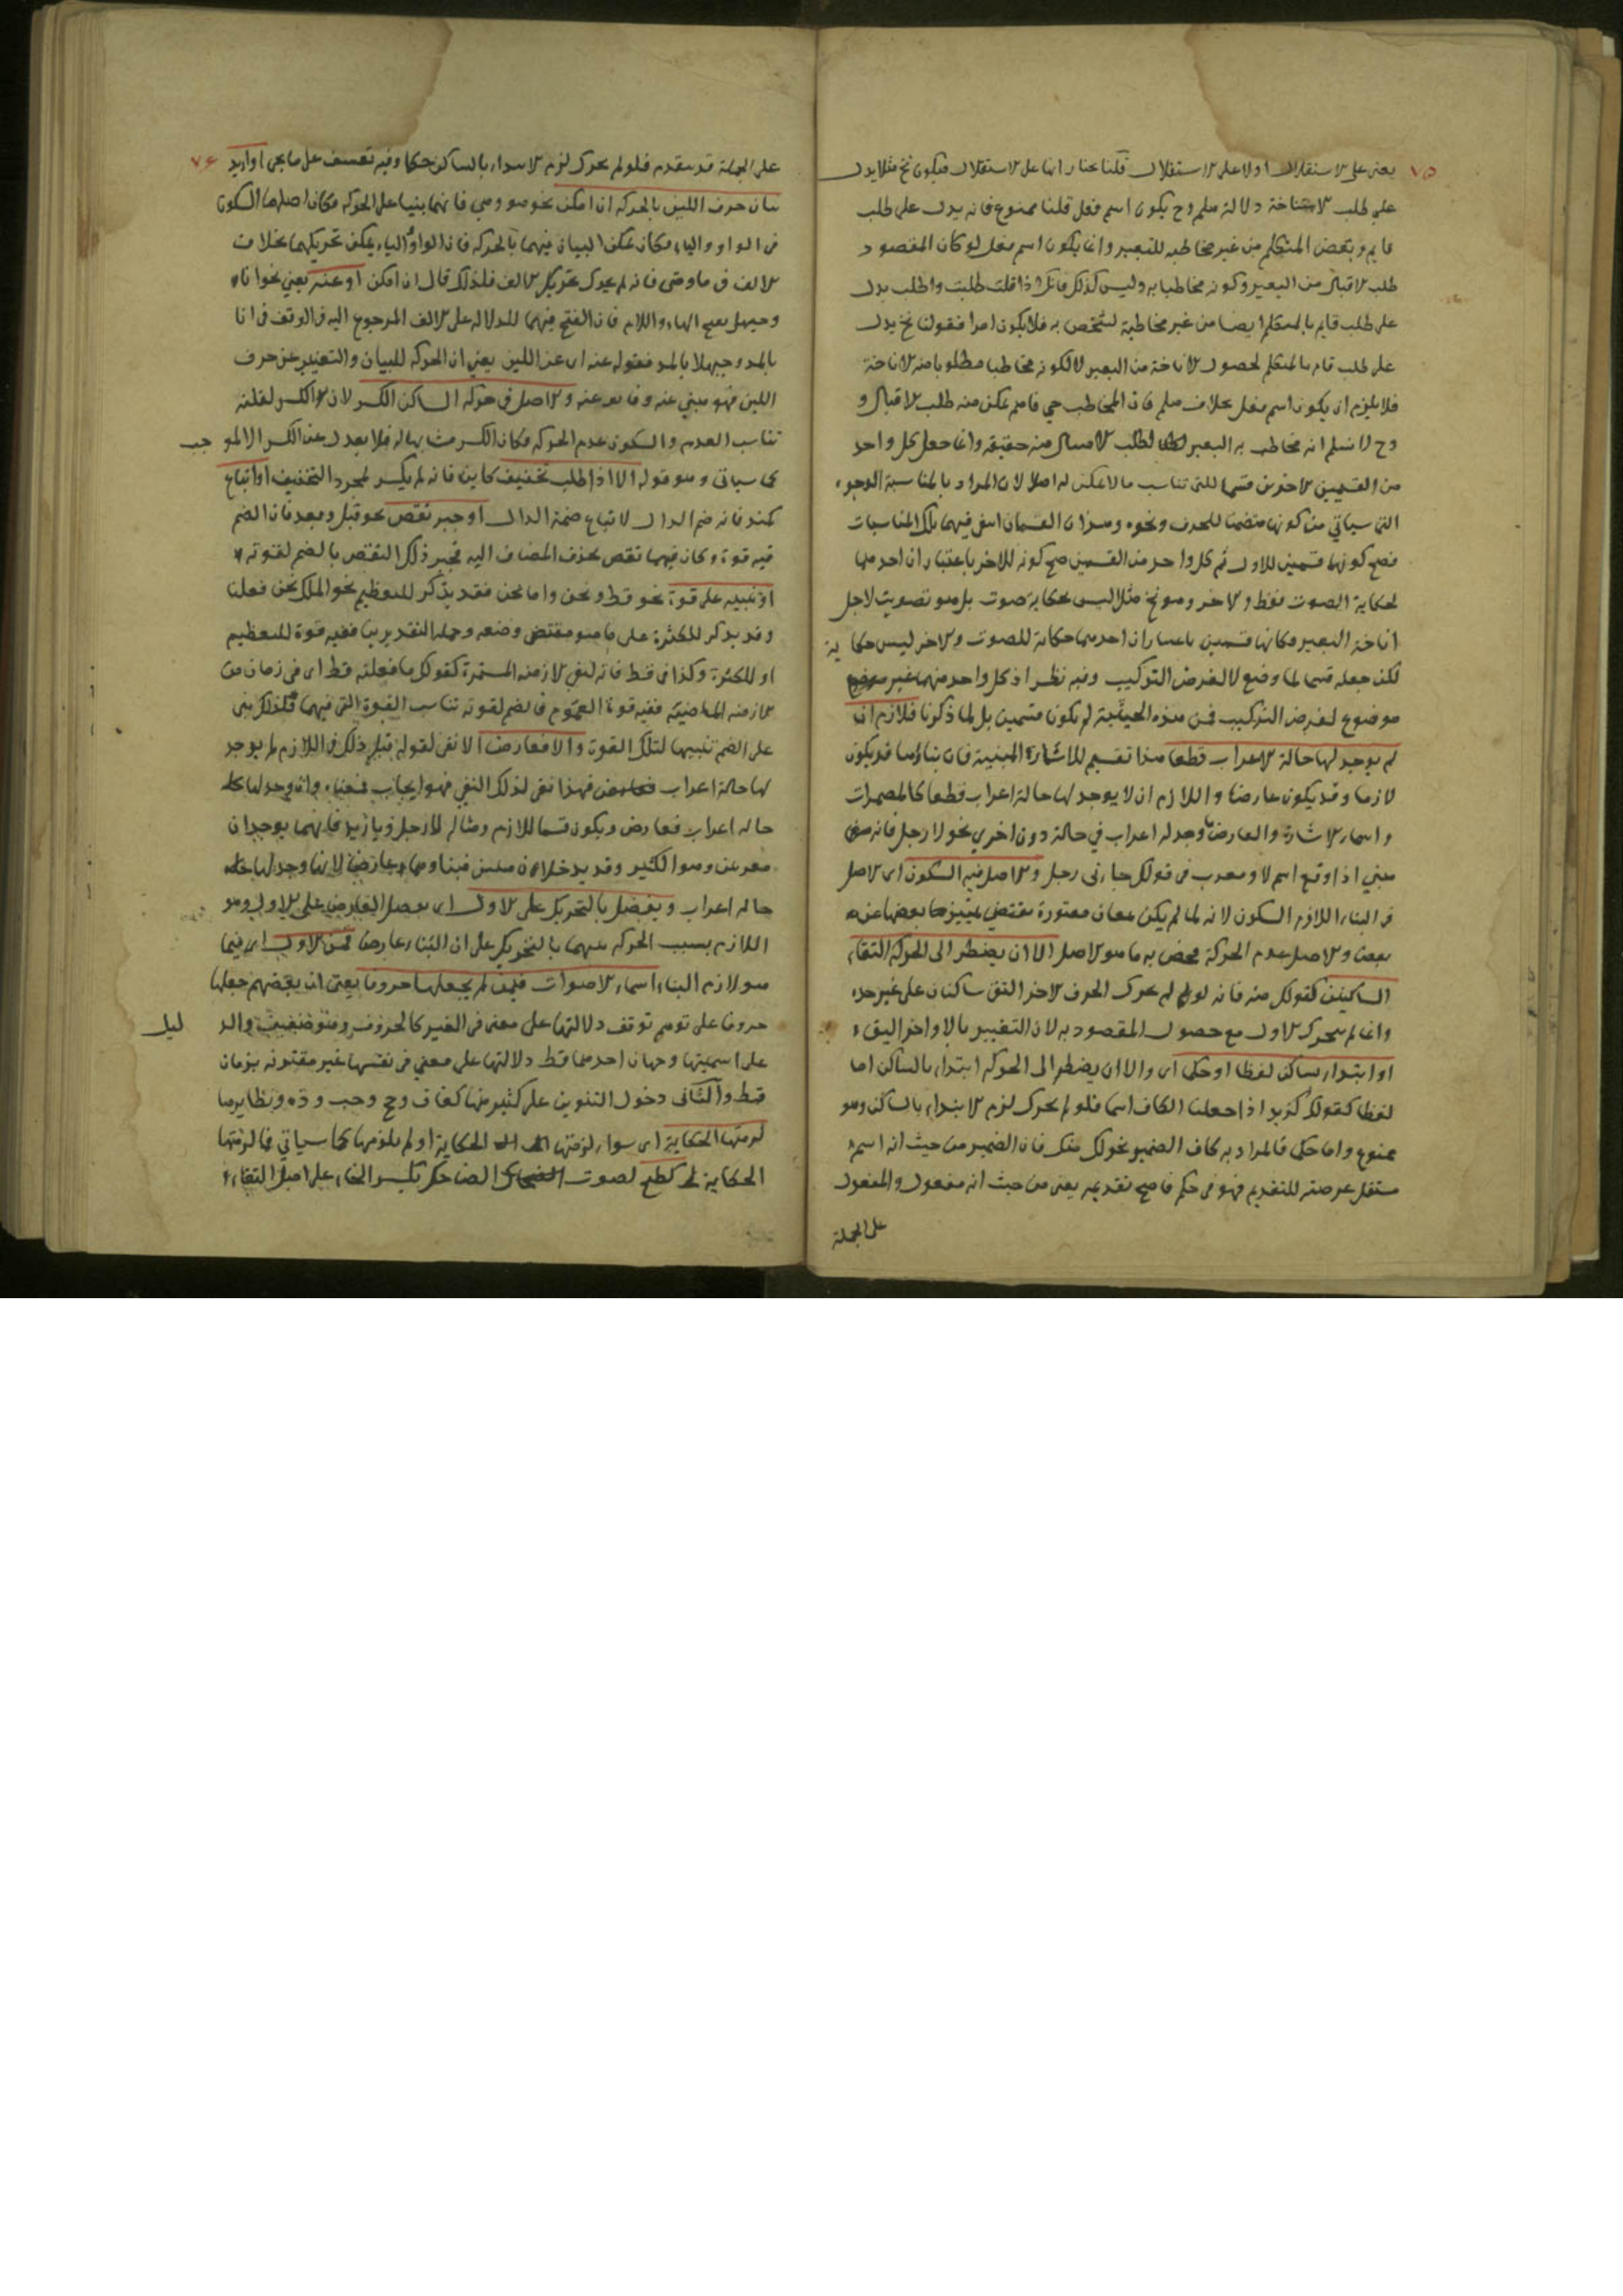 ٧٥
يعنى على الاستقلال اولا على الاستقلال قلنا نختار انها على الاستقلال فيكون نخ مثلا يدل
على طلب الاناخة دلالة هلم وح يكون اسم فعل قلنا ممنوع فانه يدل على طلب
قايم وبعض المتكلم من غير مخاطبه للبعير وانما يكون اسم فعل لو كان المقصود
طلب الاقبال من البعير وكونه مخاطبا به وليس كذلك فانك اذا قلت طلبت واطلب يدل
على طلب قايم بالمتكلم ايضا من غير مخاطبة لشخص به فلا يكون امرا فقولنا نخ يدل
على طلب قام بالمتكلم لحصول الاناخة من البعير لا لكونه مخاطبا مطلوبا منه الاناخة
فلا يلزم ان يكون اسم فعل بخلاف هلم فان المخاطب حي فاهم يمكن منه طلب الاقبال و
وح لا نسلم انه مخاطب به البعير لطلب الامتثال منه حقيقه وانما جعل كل واحد
من القسمين الاخرين قسما للتى تناسب ما لا يمكن له اصلا لان المراد بالمناسبة الوجوه
التى سياتي من كونها متضمنا للحرف ونحوه وهذان القسمان انتفى فيهما تلك المناسبات
فصح كونهما قسمين للاول ثم كل واحد من القسمين صح كونه للاخر باعتبار ان احدهما
لحكاية الصوت فقط والاخر وهو نخ مثلا ليس بحكاية صوت بل هو تصويت لاجل
اناخة البعير فكانها قسمين باعتبار ان احدهما حكاية للصوت والاخر ليس حكاية
لكن جعله قسما لما وضع لا لغرض التركيب وفيه نظر اذ كل واحد منهما غير
موضوع لغرض التركيب فمن هذه الحيثية لم يكون قسمين بل لما ذكرنا فلازم ان
لم يوجد لها حالة الاعراب قطعا هذا تقسيم للاشارة المبنية فان بناؤها قد يكون
لازما وقد يكون عارضا واللازم ان لا يوجد لها حالة اعراب قطعا كالمضمرات
واسماء الاشارة والعارض ما وجد له اعراب في حالة دون اخري نحو لا رجل فانه
مبني اذا وقع اسم لا ومعرب فى قولك جاءنى رجل والاصل فيه السكون اى الاصل
فى البناء اللازم السكون لانه لما لم يكن معان معتورة يقتضي تمييزها بعضها عن
بعض والاصل عدم الحركة فخص به ما هو الاصل الا ان يضطر الى الحركة التقاء
الساكنين كقولك منذ فانه لو لم يحرك الحرف الاخر التقى ساكنان على غير حده
وانما لم يحرك الاول مع حصول المقصود به لان التغيير بالاواخر اليق
او ابتداء بساكن لفظا او حكما اى والا ان يضطر الى الحركة ابتداء بالساكن اما
لفظا كقولك كزيد اذا جعلنا الكاف اسما فلو لم يحرك لزم الابتداء بالساكن وهو
ممنوع واما حكما فالمراد به كاف الضمير نحو لك منك فان الضمير من حيث انه اسم
مستقل عرضة للتقديم فهو فى حكم ما صح تقديمه يعنى من حيث انه مفعول والمفعول
على الجملة
٧٦
على الجملة قد يتقدم فلو لم يحرك لزم الابتداء بالساكن حكما وفيه تعسف على ما يجى او اريد
بيان حرف اللين بالحركة ان امكن نحو هو وهي فانهما بنيا على الحركة وكان اصلهما السكون
فى الواو والياء فكان يمكن البيان فيهما بالحركة فان الواو والياء يمكن تحريكهما بخلاف
الالف فى ما ومتى فانه لم يحرك تحريك الالف فلذلك قال ان امكن او عنه يعني نحو انا
وحيهل بفتح الهاء واللام فان الفتح فيهما للدلالة على الالف المرجوع اليه فى الوقف فى انا
بالمد وحيهلا بالمد فقوله عنه اى عن اللين يعني ان الحركة للبيان والتعبير عن حرف
اللين فهو مبني عنه والاصل فى حركة الساكن الكسر لان الكسر لقلته
تناسب العدم والسكون عدم الحركة فكان الكسر مشابها له فلا يعدل عن الكسر الا لموجب
كما سياتى وهو قوله الا اذا طلب تخفيف كاين فانه لم يكسر لمجرد التخفيف او اتباع
كمنذ فانه ضم الذال لاتباع ضمة الدال او جبر نقص نحو قبل وبعد فان الضم
فيه قوة وكان فيهما نقص بحذف المضاف اليه فجبر ذلك النقص بالضم لقوته
او تنبيه على قوة نحو قط ونحن واما نحن فقد يذكر للتعظيم نحو الملك نحن فعلنا
وقد يذكر للكثرة على ما هو مقتضى وضعه وعلى التقديرين ففيه قوة للتعظيم
او للكثرة وكذا فى قط فانه لنفى الازمنه المستمرة كقولك ما فعلته قط اى فى زمان من
الازمنه الماضية ففيه قوة العموم فالضم لقوته تناسب القوة التى فيهما فلذلك بنى
على الضم تنبيها لتلك القوة والا فعارض الا نفى لقوله قبل ذلك فى اللازم لم يوجد
لها حالة اعراب فهذا نفى لذلك النفي فهو ايجاب فمعناه وان وجد لها
حاله اعراب فعارض ويكون قسما للازم ومثاله لا رجل ويا زيد فانهما يوجدان
معربين وهو الكثير وقد يدخلان فبناوهما عارض لانها وجد لها
حاله اعراب ويفضل بالتحريك على الاول اى يفضل العارض على الاول وهو
اللازم بسبب الحركة تنبيها بالتحريك على ان البناء عارض فمن الاول اى فيما
هو لازم البناء اسماء الاصوات فيمن لم يجعلها حروفا يعنى ان بعضهم جعلها
حروفا على توهم توقف دلالتها على معنى فى الغير كالحروف وهو ضعيف والدليل
على اسميتها وجهان احدهما قط دلالتها على معني فى نفسها غير مقترنه بزمان
قط والثانى دخول التنوين على كثير منها كغاق وحج وحب وده ونظايرها
لزمتها الحكاية اى سواء لزمتها الحكاية او لم يلزمها كما سياتي فما لزمتها
الحكاية كطيخ لصوت الضاحك بكسر الخاء على اصل التقاء